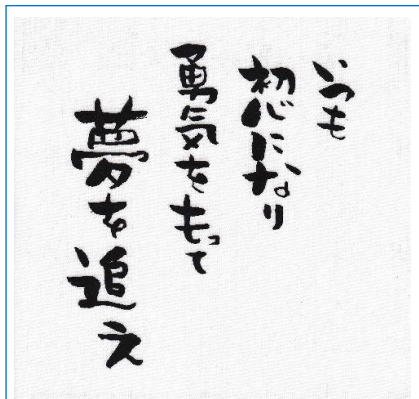 いつも
初心になり
勇気をもって
夢を追え